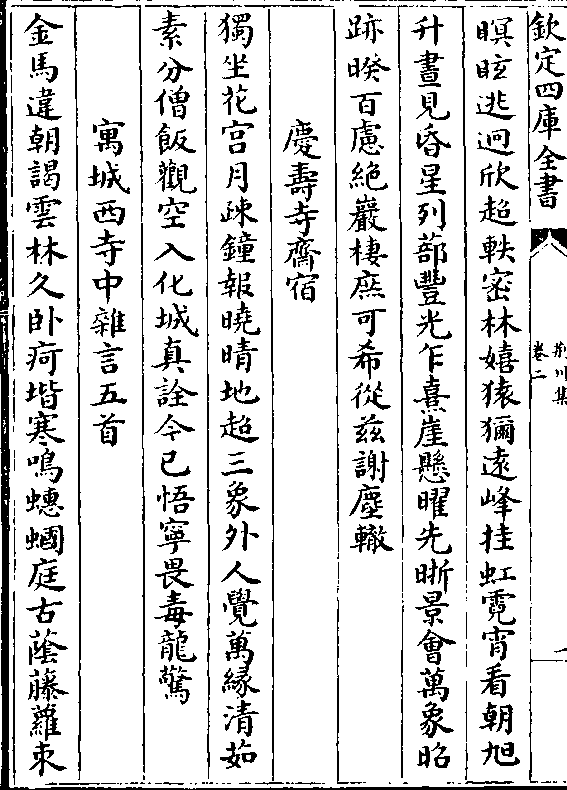 欽定四庫全書
荆川集
卷二
瞑眩逃迥欣超軼密林嬉猿獮遠峰挂虹霓宵看朝旭
升晝見昏星列蔀豐光乍熹崖懸曜先晰景會萬象昭
跡暌百慮絶巖棲庶可希從兹謝塵轍
慶壽寺齋宿
獨坐花宫月疎鐘報曉晴地超三象外人覺萬縁清茹
素分僧飯觀空入化城真詮今已悟寧畏毒龍驚
寓城西寺中雜言五首
金馬違朝謁雲林久卧疴堦寒鳴蟪蟈庭古蔭藤蘿朿